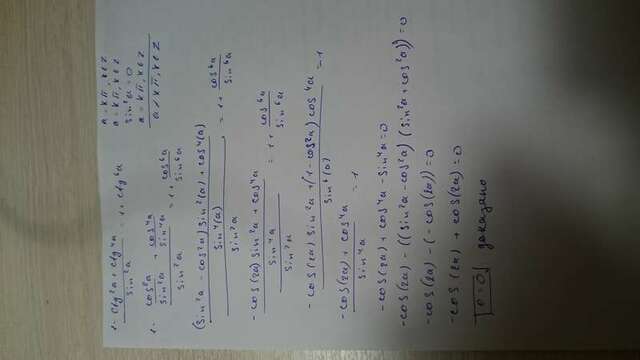 1 - ctg²a + ctg⁴a / sin²a = 1 + ctg⁶a
a = kπ, k∈Z
a = kπ, k∈Z
sin²a = 0
a = kπ, k∈Z
a ≠ kπ, k∈Z
1 - cos²a / sin²a + cos⁴a / sin⁴a / sin²a = 1 + cos⁶a / sin⁶a
(sin²a - cos²a) sin²(a) + cos⁴(a) / sin⁴(a) / sin²a = 1 + cos⁶a / sin⁶a
-cos(2a) sin²a + cos⁴a / sin⁴a / sin²a = 1 + cos⁶a / sin⁶a
-cos(2a) sin²a + (1 - cos²a) cos⁴a / sin⁶(a) = 1
-cos(2a) + cos⁴a / sin⁴a = 1
-cos(2a) + cos⁴a - sin⁴a = 0
-cos(2a) - ((sin²a - cos²a) (sin²a + cos²a)) = 0
-cos(2a) - (-cos(2a)) = 0
-cos(2a) + cos(2a) = 0
0 = 0 доказано